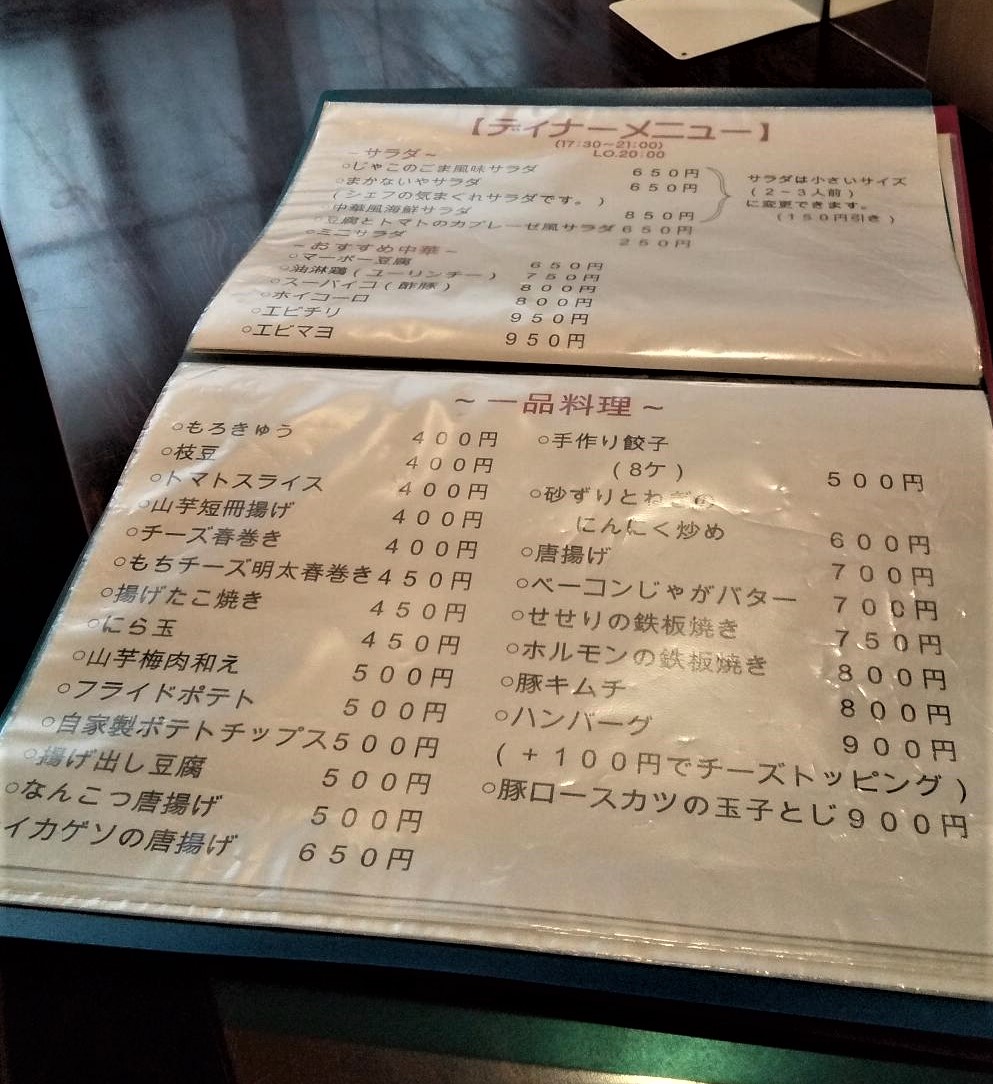 【ディナーメニュー】
(17:30~21:00)
LO.20:00
~サラダ~
○じゃこのごま風味サラダ 650円
○まかないやサラダ 650円
(シェフの気まぐれサラダです。)
中華風海鮮サラダ 850円
○豆腐とトマトのカプレーゼ風サラダ 650円
○ミニサラダ 250円
サラダは小さいサイズ
(2~3人前)
に変更できます。
(150円引き)
~おすすめ中華~
○マーボー豆腐 650円
○油淋鶏(ユーリンチー) 750円
○スーパイコ(酢豚) 800円
○ホイコーロ 800円
○エビチリ 950円
○エビマヨ 950円
~一品料理~
○もろきゅう 400円
○枝豆 400円
○トマトスライス 400円
○山芋短冊揚げ 400円
○チーズ春巻き 400円
○もちチーズ明太春巻き 450円
○揚げたこ焼き 450円
○にら玉 450円
○山芋梅肉和え 500円
○フライドポテト 500円
○自家製ポテトチップス 500円
○揚げ出し豆腐 500円
○なんこつ唐揚げ 500円
イカゲソの唐揚げ 650円
○手作り餃子
(8ケ) 500円
○砂ずりとねぎの
にんにく炒め 600円
○唐揚げ 700円
○ベーコンじゃがバター 700円
○せせりの鉄板焼き 750円
○ホルモンの鉄板焼き 800円
○豚キムチ 800円
○ハンバーグ 900円
(+100円でチーズトッピング)
○豚ロースカツの玉子とじ 900円